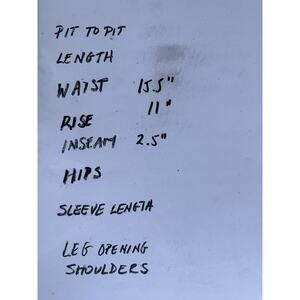 PIT TO PIT
LENGTH
WAIST 15.5"
RISE 11"
INSEAM 2.5"
HIPS
SLEEVE LENGTH
LEG OPENING
SHOULDERS